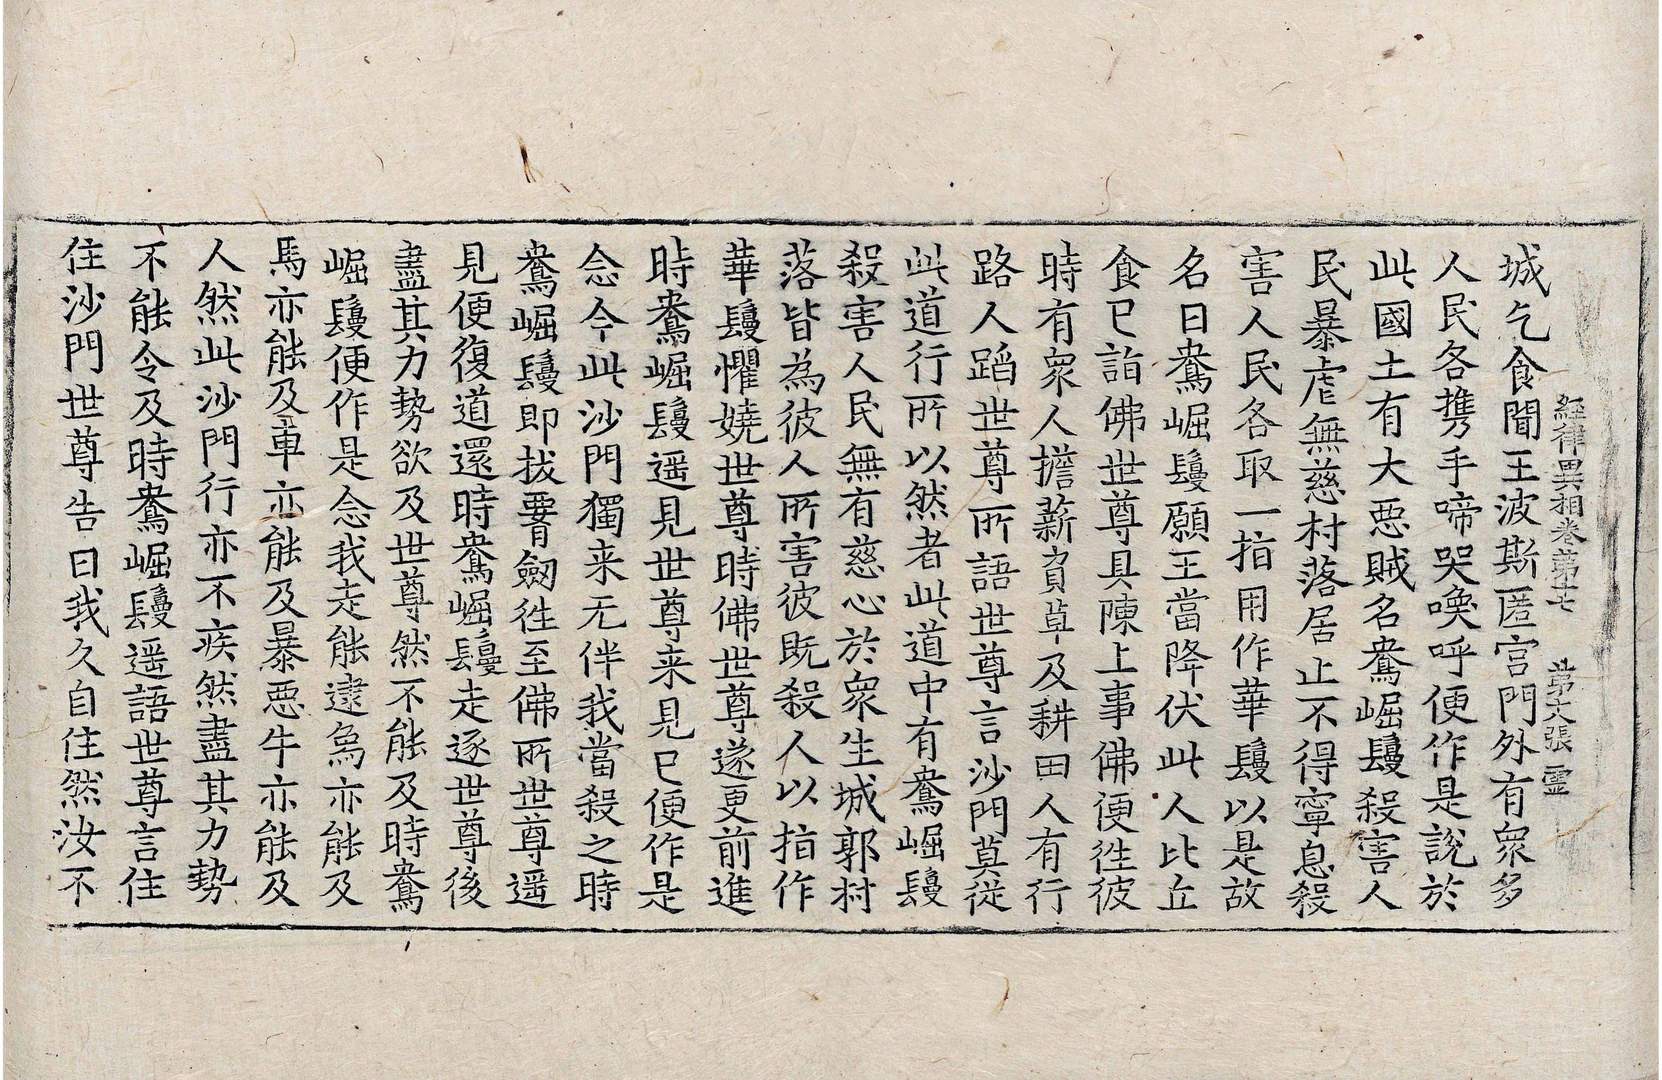 経律異相卷第十七 第六張 霊
城乞食聞王波斯匿宮門外有衆多
人民各携手啼哭喚呼便作是說於
此國土有大惡賊名鴦崛鬘殺害人
民暴虐無慈村落居止不得寧息殺
害人民各取一指用作華鬘以是故
名曰鴦崛鬘願王當降伏此人比丘
食已詣佛世尊具陳上事佛便往彼
時有衆人擔薪負草及耕田人有行
路人蹈世尊所語世尊言沙門莫從
此道行所以然者此道中有鴦崛鬘
殺害人民無有慈心於衆生城郭村
落皆為彼人所害彼既殺人以指作
華鬘懼嬈世尊時佛世尊遂更前進
時鴦崛鬘遥見世尊来見已便作是
念今此沙門獨来无伴我當殺之時
鴦崛鬘即拔腰劒往至佛所世尊遥
見便復道還時鴦崛鬘走逐世尊後
盡其力勢欲及世尊然不能及時鴦
崛鬘便作是念我走能逮烏亦能及
馬亦能及車亦能及暴惡牛亦能及
人然此沙門行亦不疾然盡其力勢
不能令及時鴦崛鬘遥語世尊言住
住沙門世尊告曰我久自住然汝不